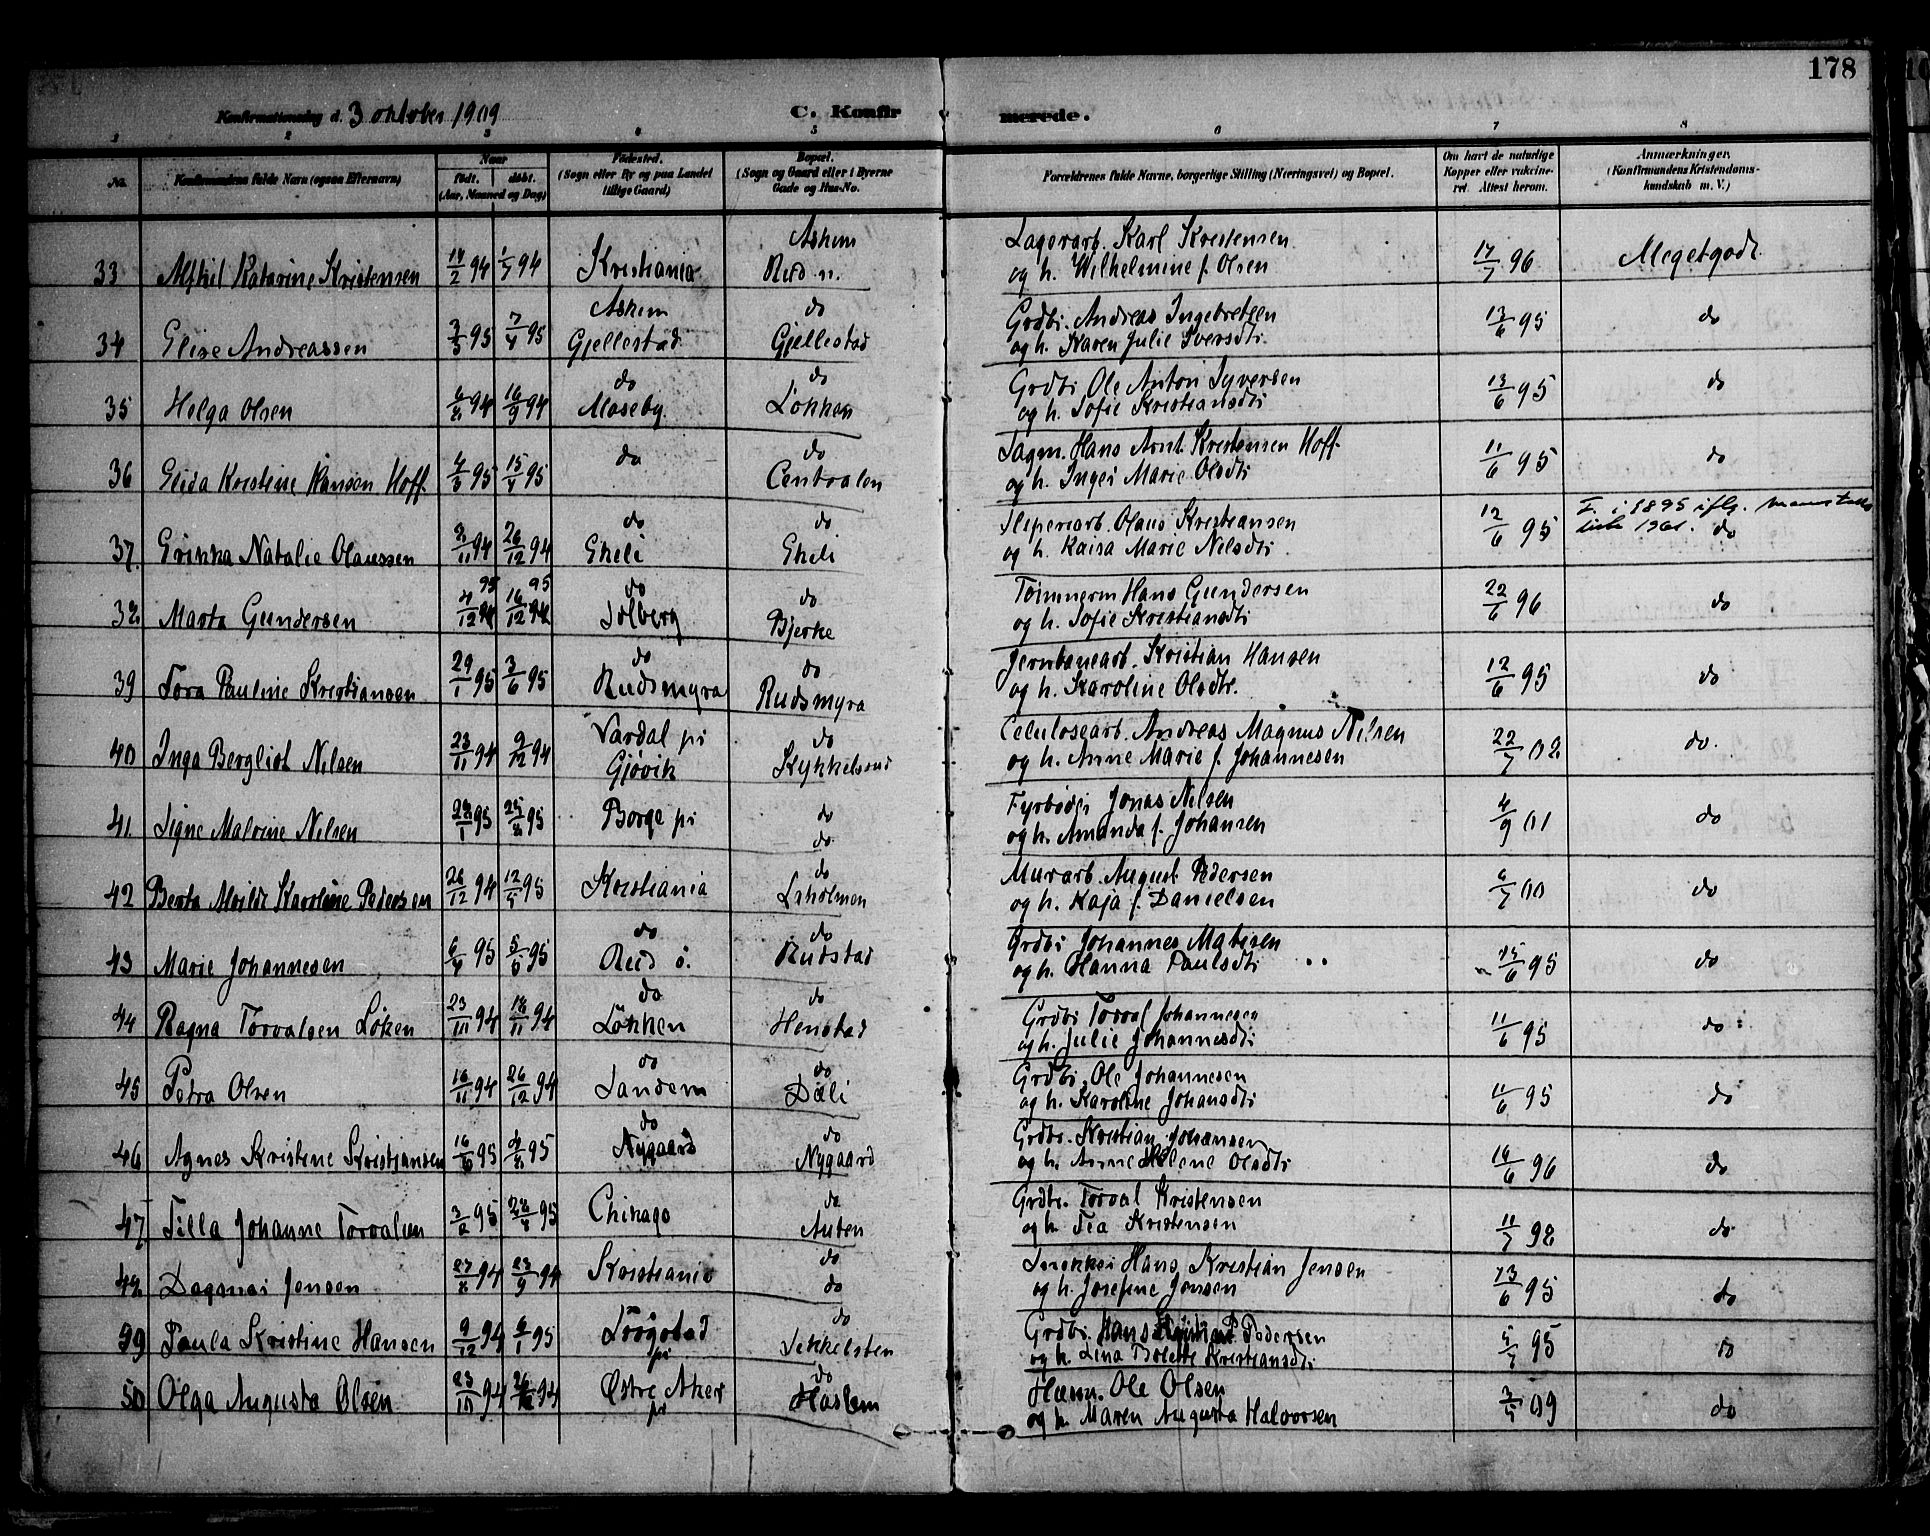 178
Konfirmationsdag d. 3 oktober 1909
C. Konfirmerede.
1 2 3 4 5 6 7 8
No. Konfirmandens fulde Navn (ogsaa Efternavn) Naar født. døbt. (Aar, Maaned og Dag) Fødested. (Sogn eller By og paa Landet tillige Gaard) Bopæl. (Sogn og Gaard eller i Byerne Gade og Hus-No. Forældrenes fulde Navne, borgerlige Stilling (Næringsvei) og Bopæl. Om havt de naturlige Kopper eller vakcineret. Attest herom. Anmærkninger. (Konfirmandens Kristendomskundskab m. V.)
Askim Lagerarb. Karl Kristensen
33 Katarine Kristensen 14/2 94 1/7 94 Kristiania Rud n. og h. Wilhelmine f. Olsen 17/7 96 Megetgodt.
Askim do Grdbr. Andreas Ingebretsen
34 Elise Andreassen 3/3 95 7/4 95 Gjellestad Gjellestad og h. Karen Julie Iversdtr. 13/6 95 do
do do Grdbr. Ole Anton Syversen
35 Helga Olsen 6/8 94 16/9 94 Moseby Løkken og h. Sofie Kristiansdtr 13/6 95 do
do do Sagm. Hans Arnt Kristensen Hoff
36 Elida Kristine Hansen Hoff 4/3 95 15/4 95 Centralen og h. Inger Marie Olsdtr 11/6 95 do
do do Sliperiarb. Olaus Kristiansen F. i 1895 iflg. manntalls
37. Erikka Natalie Olaussen 3/11 94 26/12 94 Eheli Eheli og h. Kaisa Marie Nilsdtr. 12/6 95 liste 1961. do
95 95 do do Tømmerm Hans Gundersen
38 Marta Gundersen 4/12 94 16/12 94 Solberg Bjerke og h. Sofie Kristiansdtr 22/6 96 do
do do Jernbanearb. Kristian Hansen
39 Tora Pauline Kristiansen 29/1 95 3/6 95 Rudsmyra Rudsmyra og h. Karoline Olsdtr. 12/6 95 do
Vardal pr do Celulosearb. Andreas Magnus Nilsen
40 Inga Bergliot Nilsen 23/11 94 9/12 94 Gjøvik Kykkelsrud og h. Anne Marie f. Johannesen 22/7 02 do.
Borge pr do Fyrbøder Jonas Nilsen
41 Signe Malvine Nilsen 28/1 95 25/3 95 do og h. Amanda f. Johansen 4/9 01 do
do Murarb. August Pedersen
42 Berta Karoline Pedersen 26/12 94 12/5 95 Kristiania Lrholmen og h. Kaja f. Danielsen 6/7 00 do
do do Grdbr Johannes Matisen
43 Marie Johannesen 6/4 95 5/6 95 Rud ø. Rudstad og h. Hanna Paulsdtr 15/6 95 do
do do Grdbr Torval Johannesen
44 Ragna Torvalsen Løken 23/10 94 18/11 94 Løkken Henstad og h. Julie Johannesdtr 11/6 95 do
do do Grdbr. Ole Johannesen
45 Petra Olsen 16/11 94 26/12 94 Sandem Dæli og h. Karoline Johansdtr 11/6 95 do
do do Grdbr. Kristian Johansen
46 Agnes Kristine Kristiansen 16/6 95 4/8 95 Nygaard Nygaard og h. Anne Helene Olsdtr 16/6 96 do
do Grdbr. Torval Kristensen
47 Tilla Johanne Torvalsen 3/2 95 28/4 95 Chikago Auten og h. Tea Kristensen 11/7 98 do
do Snekker Hans Kristian Jensen
48 Dagmar Jensen 27/8 94 23/9 94 Kristiania do og h. Josefine Jensen 13/6 95 do
do Grdbr Hans Pedersen
49 Paula Kristine Hansen 9/12 94 6/1 95 Trøgstad pr Sekkelsten og h. Lina Bolette Kristiansdtr 5/7 95 do
do Hæm. Ole Olsen
50 Olga Augusta Olsen 23/10 94 26/12 94 Østre Aker pr Haslem og h. Maren Augusta Halvorsen 3/5 09 do